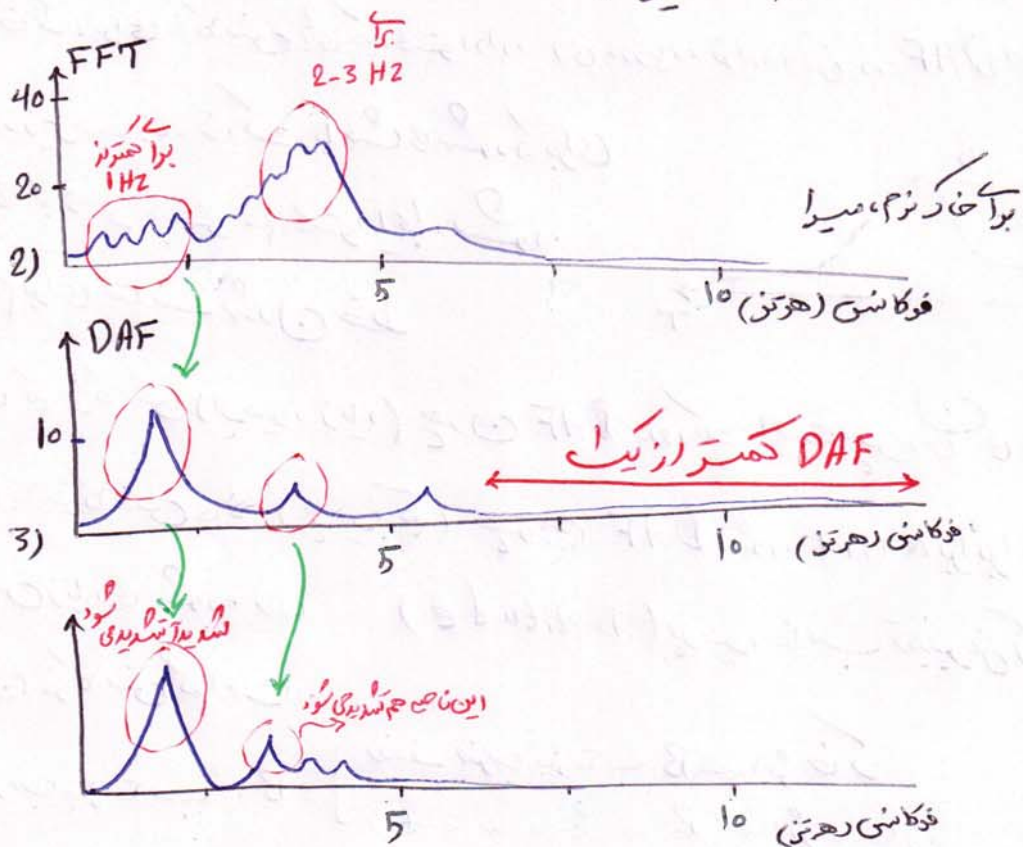 FFT
40
20
برای
2-3 Hz
برای هرتز
1Hz
برای خاک نرم، میرا
2)
5
10
فرکانس (هرتز)
DAF
10
DAF کمتر از یک
3)
5
10
فرکانس (هرتز)
شدیداً تشدید می شود
این ناحیه هم تشدید می شود
5
10
فرکانس (هرتز)